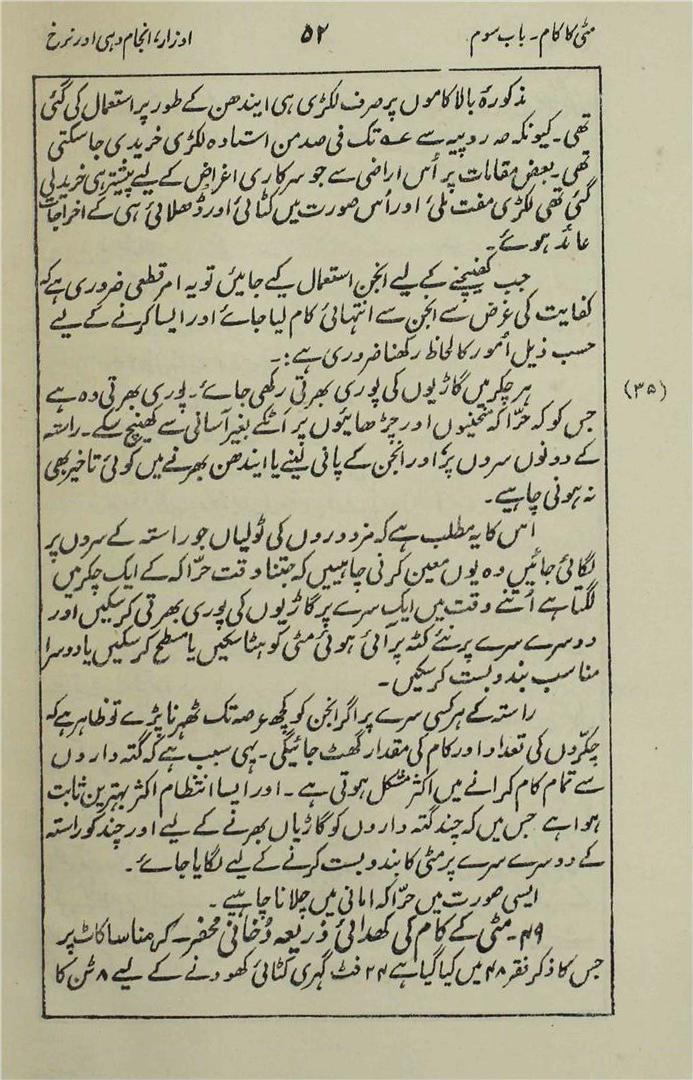 مٹی کا کام۔ باب سوم ۵۲ اوزار، انجام دہی اور نرخ
مذکورۂ بالا کاموں پر صرف لکڑی ہی ایندھن کے طور پر استعمال کی گئی
تھی۔ کیونکہ روپیہ سے تک فی صد من استادہ لکڑی خریدی جا سکتی
تھی۔ بعض مقامات پر اُس اراضی سے جو سرکاری اغراض کے لیے پیشتر ہی خرید لی
گئی تھی لکڑی مفت ملی اور اُس صورت میں کٹائی اور ڈھلائی ہی کے اخراجات
عائد ہوئے۔
جب کھینچنے کے لیے انجن استعمال کیے جائیں تو یہ امر قطعی ضروری ہے کہ
کفایت کی غرض سے انجن سے انتہائی کام لیا جائے اور ایسا کرنے کے لیے
حسب ذیل اُمور کا لحاظ رکھنا ضروری ہے:۔
ہر چکر میں گاڑیوں کی پوری بھرتی رکھی جائے۔ پوری بھرتی وہ ہے
(۳۵)
جس کو کہ حرّاکہ منحنیوں اور چڑھائیوں پر اَٹکے بغیر آسانی سے کھینچ سکے۔ راستہ
کے دونوں سروں پر اور انجن کے پانی لینے یا ایندھن بھرنے میں کوئی تاخیر بھی
نہ ہونی چاہیے۔
اس کا یہ مطلب ہے کہ مزدوروں کی ٹولیاں جو راستہ کے سروں پر
لگائی جائیں وہ یوں معین کرنی چاہییں کہ جتنا وقت حرّاکہ کے ایک چکر میں
لگتا ہے اُتنے وقت میں ایک سرے پر گاڑیوں کی پوری بھرتی کر سکیں اور
دوسرے سرے پر نئے کٹہ پر آئی ہوئی مٹی کو ہٹا سکیں یا مسطح کر سکیں یا دوسرا
مناسب بندوبست کر سکیں۔
راستہ کے ہر کسی سرے پر اگر انجن کو کچھ عرصہ تک ٹھہرنا پڑے تو ظاہر ہے کہ
چکرّوں کی تعداد اور کام کی مقدار گھٹ جائیگی۔ یہی سبب ہے کہ گتہ داروں
سے تمام کام کرانے میں اکثر مشکل ہوتی ہے۔ اور ایسا انتظام اکثر بہترین ثابت
ہوا ہے جس میں کہ چند گتہ داروں کو گاڑیاں بھرنے کے لیے اور چند کو راستہ
کے دوسرے سرے پر مٹی کا بندوبست کرنے کے لیے لگایا جائے۔
ایسی صورت میں حرّاکہ امانی میں چلانا چاہیے۔
۴۹۔ مٹی کے کام کی کھدائی ذریعہ دُخانی محفر۔ کرمناسا کاٹ پر
جس کا ذکر فقرہ ۴۸ میں کیا گیا ہے ۲۴ فٹ گہری کٹائی کھودنے کے لیے ۸ ٹن کا